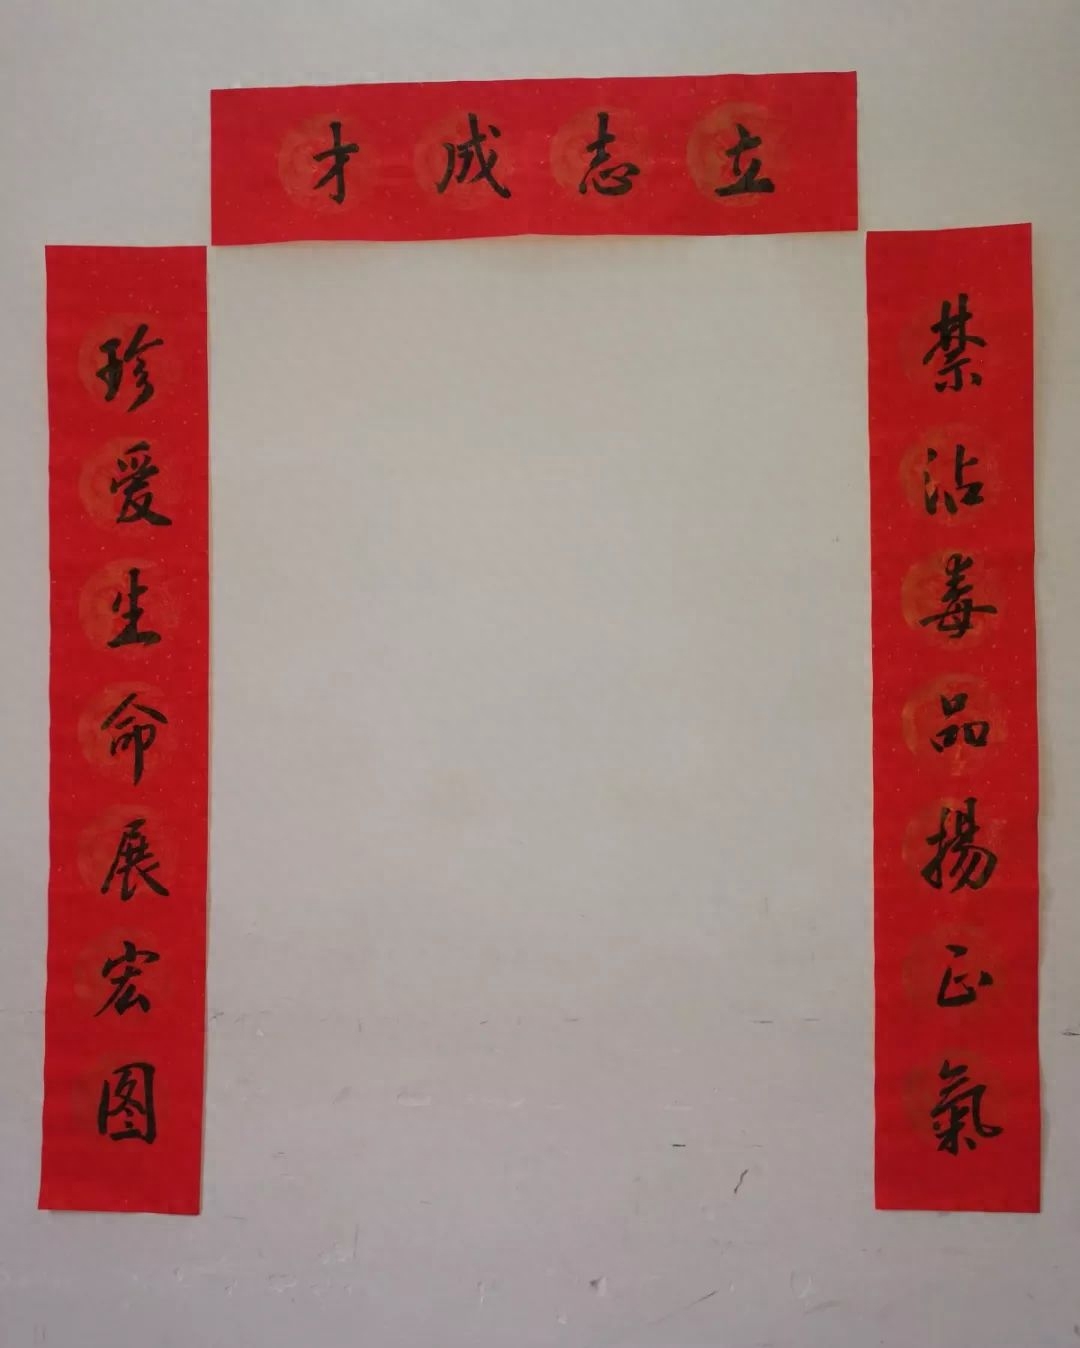 立志成才
禁沾毒品揚正氣
珍爱生命展宏图